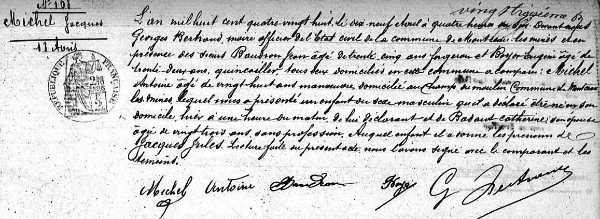 N° 101
Michel Jacques
17 Avril
L'an mil huit cent quatre vingt huit, le dix neuf Avril à quatre heures du soir devant nous
Georges Bertrand, maire officier de l'Etat civil de la commune de Montceau les mines et en
présence des sieurs Baudron Jean âgé de trente cinq ans forgeron et Boyer Eugène âgé de
trente deux ans, quincailler, tous deux domiciliés en cette commune a comparu: Michel
Antoine âgé de vingt huit ans manœuvre, domicilié au Champ du moulin Commune de Montceau
les mines lequel nous a présenté un enfant du sexe masculin qu'il a déclaré être né en son
domicile, hier à une heure du matin, de lui Déclarant et de Catherine, son épouse
âgée de vingt trois ans, sans profession, Auquel enfant il a donné les prénoms de
Jacques Jules. Lecture faite du présent acte, nous l'avons signé avec le comparant et les
témoins.
Michel Antoine Baudron Boyer G Bertrand